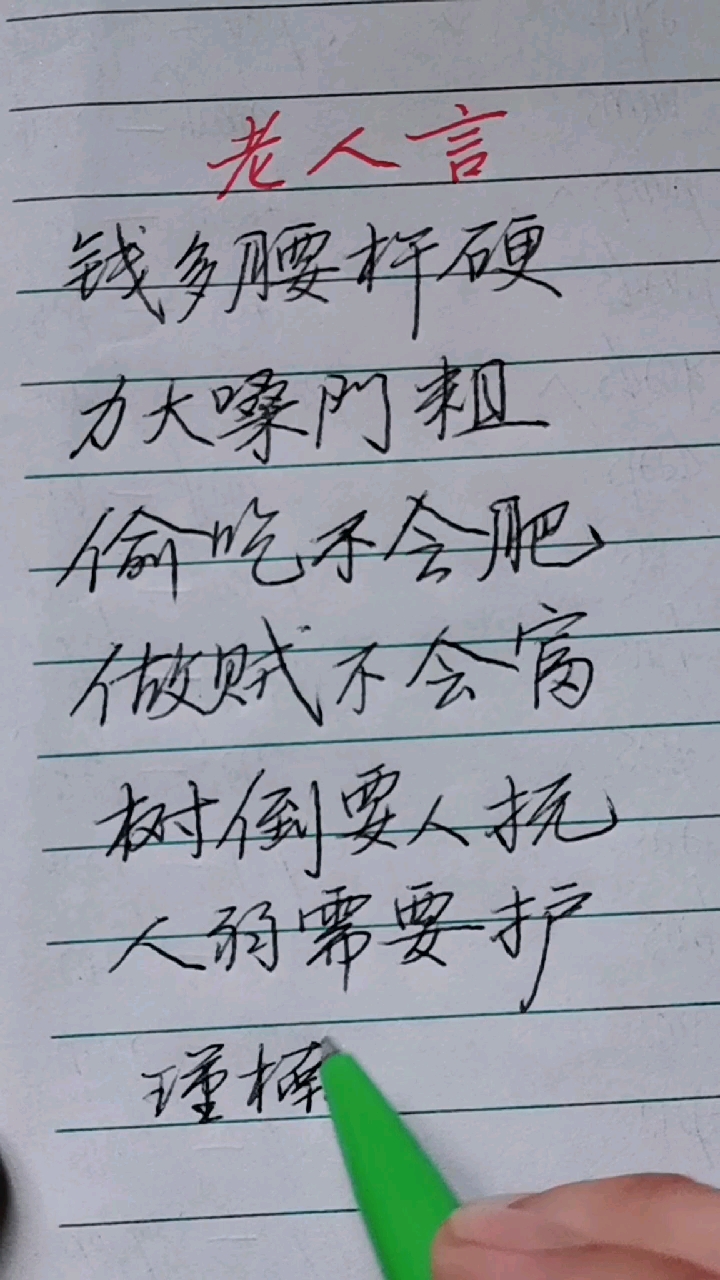 老人言
钱多腰杆硬
力大嗓门粗
偷吃不会肥
做贼不会富
树倒要人扶
人弱需要护
瑾楠